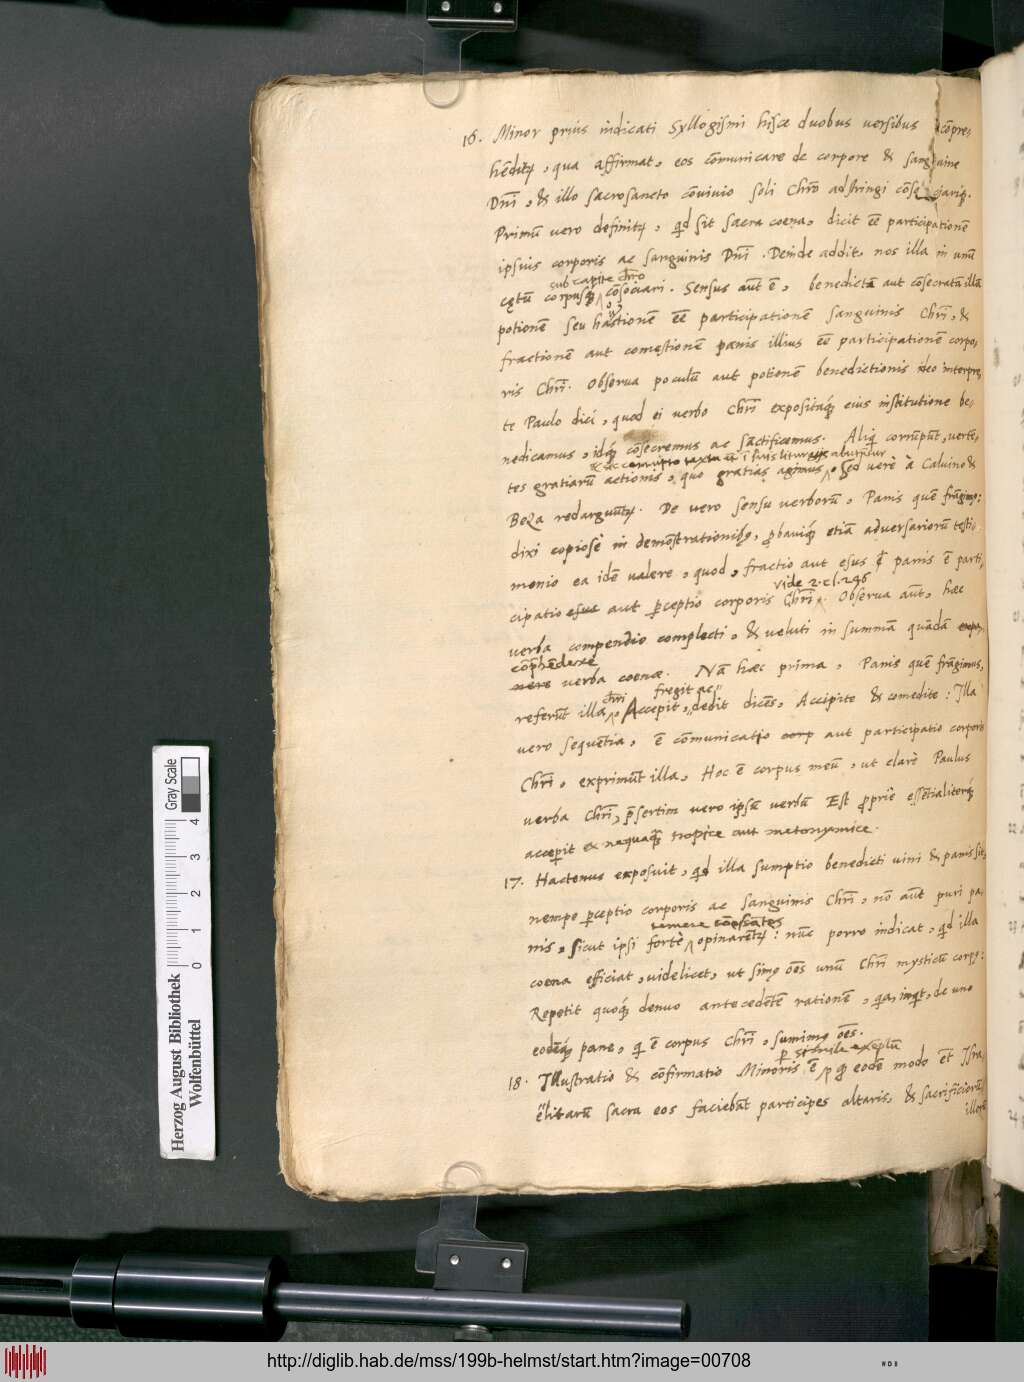 16. Minor prius indicati Syllogismi hisce duobus versibus cōpre-
hēditꝛ, qua affirmat, eos cōmunicare de corpore & sanguine
Dn̄i, & illo sacrosancto cōvivio soli Chrō adstringi
Primū vero definitꝛ, qd sit sacra coena, dicit eē participationē
ipsius corporis ac sanguinis Dn̄i. Deinde addit, nos illa in unū
sub capite chrō
cętū corpusq̨ cōsociari. Sensus aut̄ ē, benedictā aut cōsecratā illā
potionē seu hastionē eē participationē sanguinis Chrī, &
fractionē aut comestionē panis illius eē participationē corpo,
ris Chrī. Observa poculū aut potionē benedictionis ideo interpre,
te Paulo dici, quod ei verbo Chrī expositaq̨ eius institutione be,
nedicamus, idq̨ cōsecremus ac sāctificemus. Aliq̄ corrūpūt, vertē,
tes gratiarū actionis, quo gratias agimus, Sed verè à Calvino &
Beza redarguūtꝛ. De vero sensu verborū, Panis quē frāgimꝰ:
dixi copiosè in demōstrationibꝰ, probaviq̨ etiā adversariorū testi-
monio ea idē valere, quod, fractio aut esus panis ē parti,
vide 2. cl. 246
cipatio esus aut perceptio corporis Chrī. Observa aūt, haec
verba compendio complecti, & veluti in summā quādā
cōprehēdere
nere verba coenae. Nā haec prima, Panis quē frāgimus,
chrī fregit ac
referūt illa, Accepit, dedit dicēs, Accipite & comedite: Illa
vero sequētia, ē cōmunicatio corp aut participatio corporis
Chrī, exprimūt illa, Hoc ē corpus meū, ut clarè Paulus
verba Chrī, p̄sertim vero ipsū verbū Est propriè essētialiterq̨
accepit & nequaq̄ tropice aut metonymice.
17. Hactenus exposuit, qd illa sumptio benedicti vini & panis sit,
nempe perceptio corporis ac sanguinis Chrī, nō aūt puri pa,
temere
nis, sicut ipsi fortè opinarētꝛ: nūc porro indicat, qd illa
coena efficiat, videlicet, ut simꝰ oēs unū Chrī mysticū corpꝰ:
Repetit quoq̨ denuo antecedētē rationē, qa, inqt, de uno
eodēq̨ pane, qi ē corpus Chrī, sumimꝰ oēs.
p simile exēplū
18. Illustratio & cōfirmatio Minoris ē, qd eodē modo ēt Isra,
ëlitarū sacra eos faciebāt participes altaris, & sacrificiorū
illorū
Herzog August Bibliothek
Wolfenbüttel
0 1 2 3 4
Gray Scale
http://diglib.hab.de/mss/199b-helmst/start.htm?image=00708